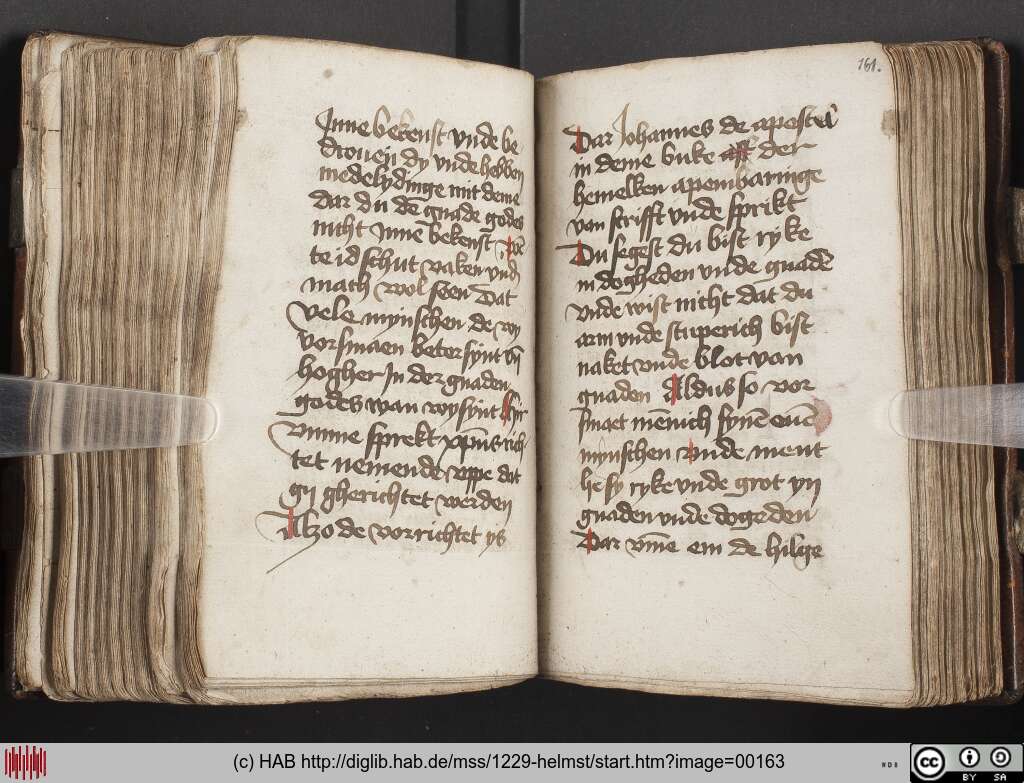 Inne bekenst vnde be
drouen dy vnde hebben
medelydinge mit deme
Dar du de gnade godes
nicht Inne bekenst
te id schut vaken vnde
mach wol scen Dat
vele mynschen de wy
vorsmaen beter synt vn̄
hogher In der gnaden
godes wan wy synt hyr
vmme sprekt xp̄us rich
tet nemende vppe dat
gy gherichtet werden
Alzo de vorrichtet ys
161.
Dar Johannes de apostel
in deme buke aff der
hemelken apenbaringe
van scrifft vnde sprikt
Du segest du bist ryke
in dogheden vnde gnadē
vnde wist nicht dat du
arm vnde stuperich bist
naket vnde blot van
gnaden Aldus so vor
smaet mēnich synē euē
mynschen vnde ment
he sy ryke vnde grot yn
gnaden vnde dogeden
Dar vm̄e em de hilge
(c) HAB http://diglib.hab.de/mss/1229-helmst/start.htm?image=00163
WDB
cc
BY SA